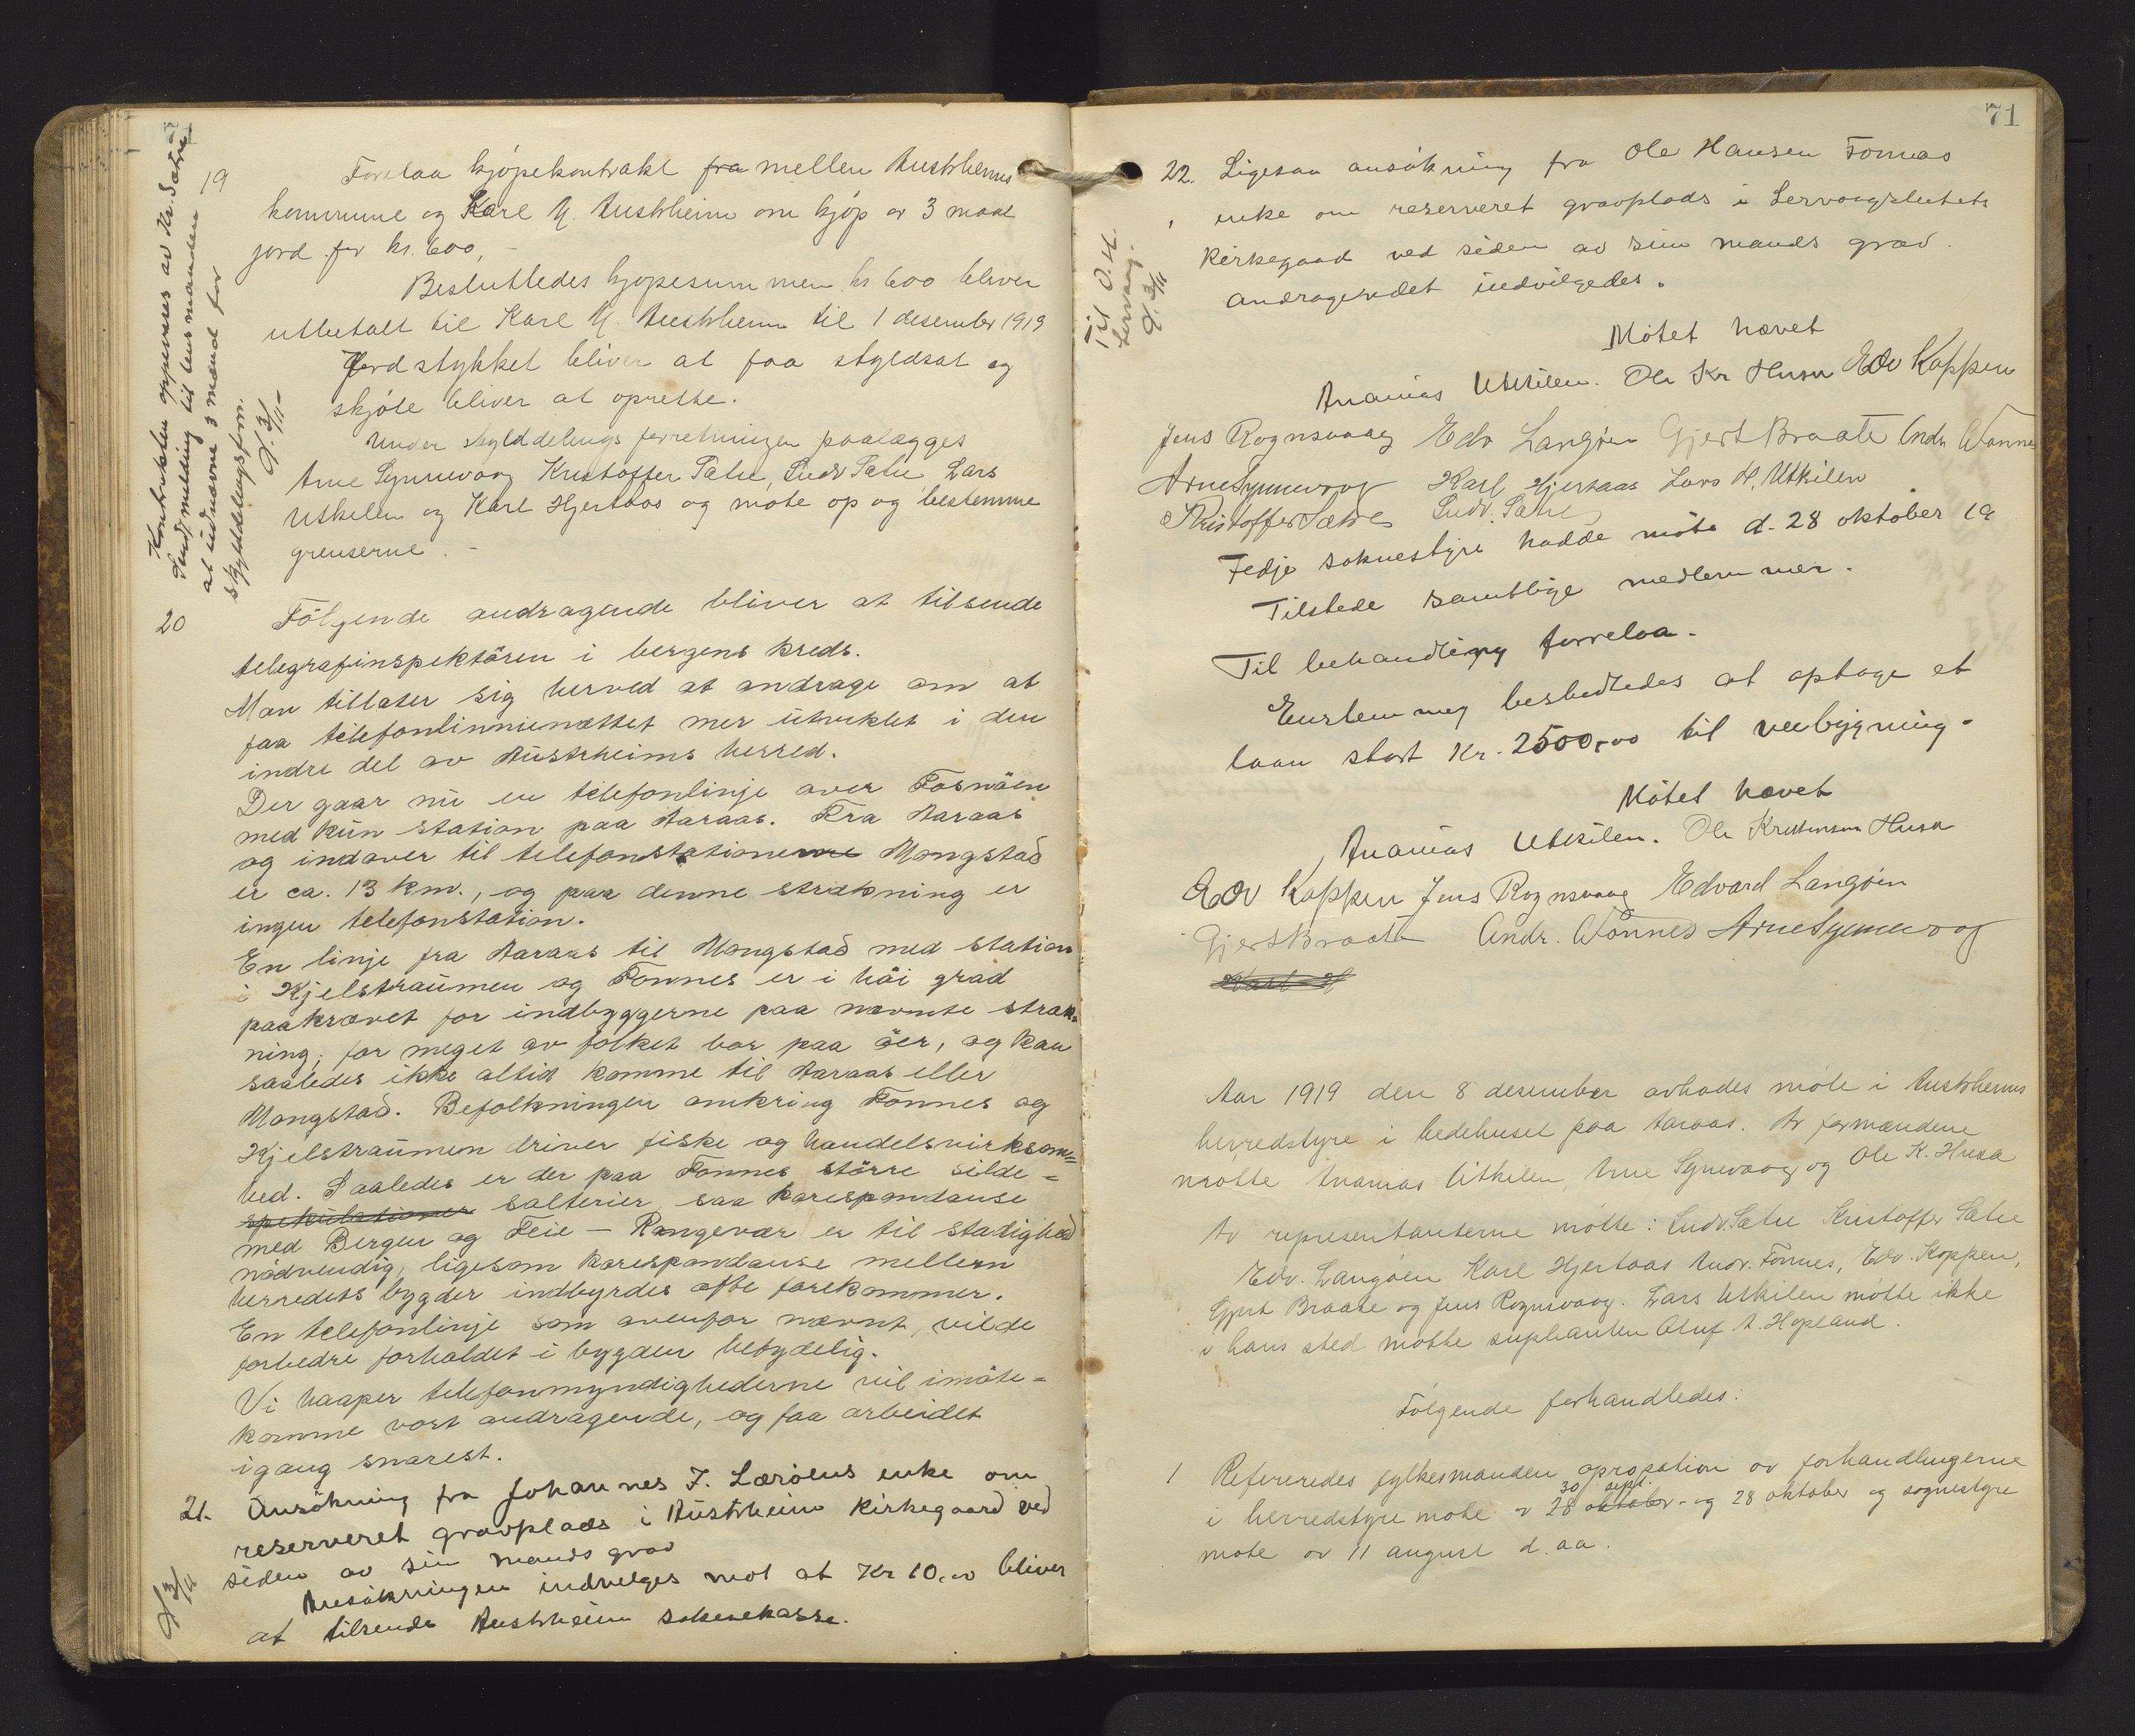 19
Forelaa kjøpekontrakt fra mellen Austrheims
kommune og Karl M. Austrheim om kjøp av 3 maal
jord for kr. 600,-
Besluttedes kjøpesummen kr 600 bliver
utbetalt til Karl M. Austrheim til 1 desember 1919
Jordstykket bliver at faa skyldsat og
skjøte bliver at oprette.
Under skylddelings forretningen paalægges
Arne Synnevaag Kristoffer Sætre, Ludv Sætre Lars
Utkilen og Karl Hjertaas og møte op og bestemme
grenserne. -
Kontrakten oppevares av Kr. Sætre
Send melding til lensmanden
at utnævne 3 mænd for
skylddelingsforr.
3/11
20
Følgende andragende bliver at tilsende
telegrafinspektøren i bergens kreds.
Man tillater sig herved at andrage om at
faa telefonlinnienættet mer utviklet i den
indre del av Austrheims herred.
Der gaar nu en telefonlinje over Fosnøen
med kun station paa Aaraas. Fra Aaraas
og indover til telefonstationerne Mongstad
er ca. 13 km., og paa denne strækning er
ingen telefonstation.
En linje fra Aaraas til Mongstad med station
i Kjelstraumen og Fonnes er i høi grad
paakrævet for indbyggerne paa nævnte stræk=
ning; for meget av folket bor paa øer, og kan
saaledes ikke altid komme til Aaraas eller
Mongstad. Befolkningen omkring Fonnes og
Kjelstraumen driver fiske og handelsvirksom=
hed. Saaledes er der paa Fonnes større silde=
spekulationer salterier, saa korespondanse
med Bergen og Feie - Rongevær er til stadighed
nødvendig, ligesom korespondanse mellem
herredets bygder indbyrdes ofte forekommer.
En telefonlinje som ovenfor nævnt, vilde
forbedre forholdet i bygden betydelig.
Vi haaper telefonmyndighederne vil imøte=
komme vort andragende, og faa arbeidet
igang snarest.
21. Ansøkning fra Johannes J. Lerøens enke om
reserveret gravplads i Austrheim Kirkegaard ved
siden av sin mands grav
Ansøkningen indvilges mot at Kr 10,00 bliver
at tilsende Austrheim soknekasse.
3/11
71
22. Ligesaa ansøkning fra Ole Hansen Fonnes
enke om reserveret gravplads i Lervaagsluttets
Kirkegaard ved siden av sin mands grav.
Andragendet indvilgedes.
Til O. H.
Lervaag.
3/11
Møtet hævet
Ananias Utkilen. Ole Kr Husa Edv Koppen
Jens Rognsvaag Edv Langøen Gjert Braate Andr. Vonnes
Arne Synnevaag Karl Hjertaas Lars H. Utkilen
Kristoffer Sætre Ludv. Sætre
Fedje soknestyre hadde møte d. 28 oktober 19
Tilstede samtlige medlemmer.
Til behandling forrelaa.
Enstemmig besluttedes at optage et
laan stort Kr. 2500,00 til veibygning.
Møtet hævet
Ananias Utkilen. Ole Kristensen Husa
Edv Koppen Jens Rognsvaag Edvard Langøen
Gjert Braate Andr. Vonnes Arne Synnevaag
Karl H
Aar 1919 den 8 desember avhodes møte i Austrheims
herredstyre i bedehuset paa Aaraas. Av formændene
møtte Ananias Utkilen, Arne Synevaag og Ole K. Husa
Av representanterne møtte: Ludv. Sætre Kristoffer Sætre
Edv. Langøen Karl Hjertaas Andr. Fonnes, Edv. Koppen,
Gjert Braate og Jens Rognsvaag. Lars Utkilen møtte ikke
i hans sted møtte suplianten Oluf A. Hopland.
Følgende forhandledes:
1 Refereredes fylkesmanden apropation av forhandlingerne
30 sept.
i herredstyre møte av 28 oktober - og 28 oktober og sognestyre
møte av 11 august d. aa.